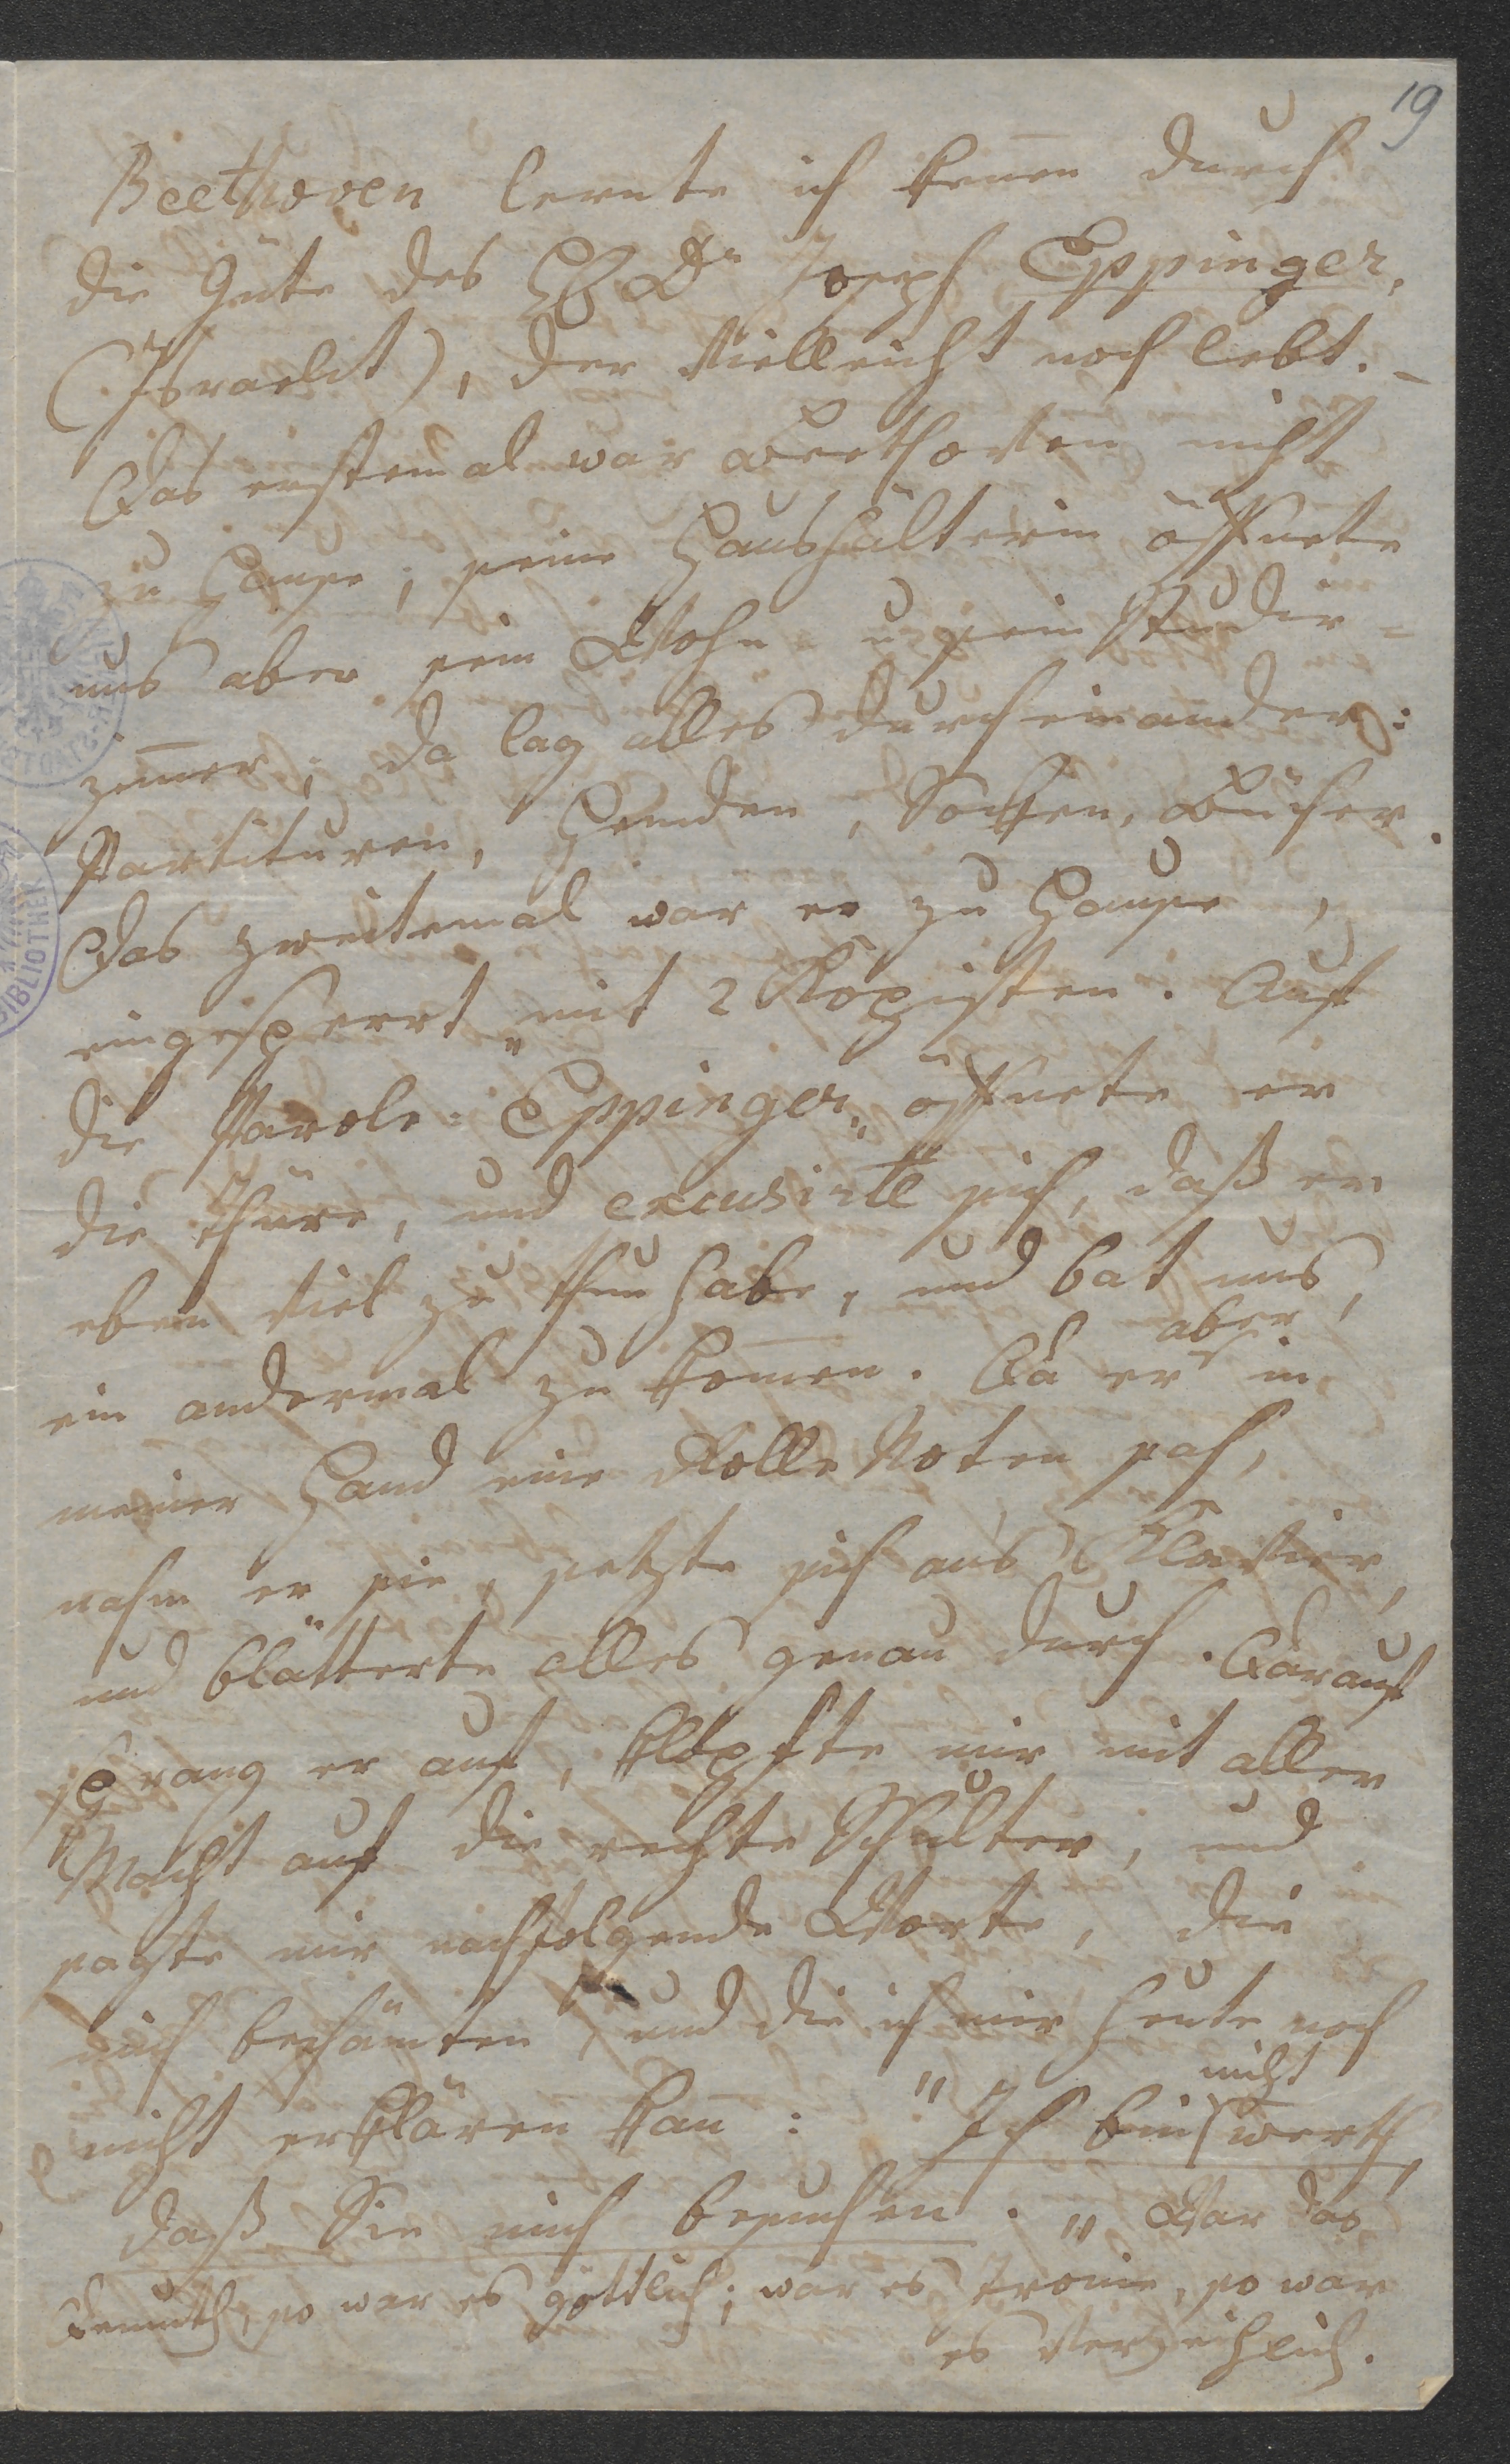 19
Beethoven lernte ich keñen durch
die Güte des H Dr Joseph Eppinger,
(Israelit), der vielleicht noch lebt. –
Das erstemal war Beethoven nicht
zu Hause; seine Haushälterin öffnete
uns aber sein Wohn- u. sein Studier-
zim̄er; da lag alles durcheinander:
Partituren, Hemden, Socken, Bücher.
Das zweitemal war er zu Hause,
eingesperrt mit 2 Kopisten. Auf
die Parole „Eppinger„ öffnete er
die Thüre, und excusirte sich, daß er
eben viel zu thun habe, und bat uns,
ein andermal zu kom̄en. Da er aber in
meiner Hand eine Rolle Noten sah,
nahm er sie, setzte sich an's Klavier,
und blätterte alles genau durch. Darauf
sprang er auf, klopfte mir mit aller
Macht auf die rechte Schulter, und
sagte mir nachfolgende Worte, die
mich beschämten, und die ich mir heute noch
nicht erklären kañ: "Ich bin nicht werth,
daß Sie mich besuchen. „ War das
Demuth, so war es göttlich; war es Ironie, so war
es verzeihlich.
BIBLIOTHEK